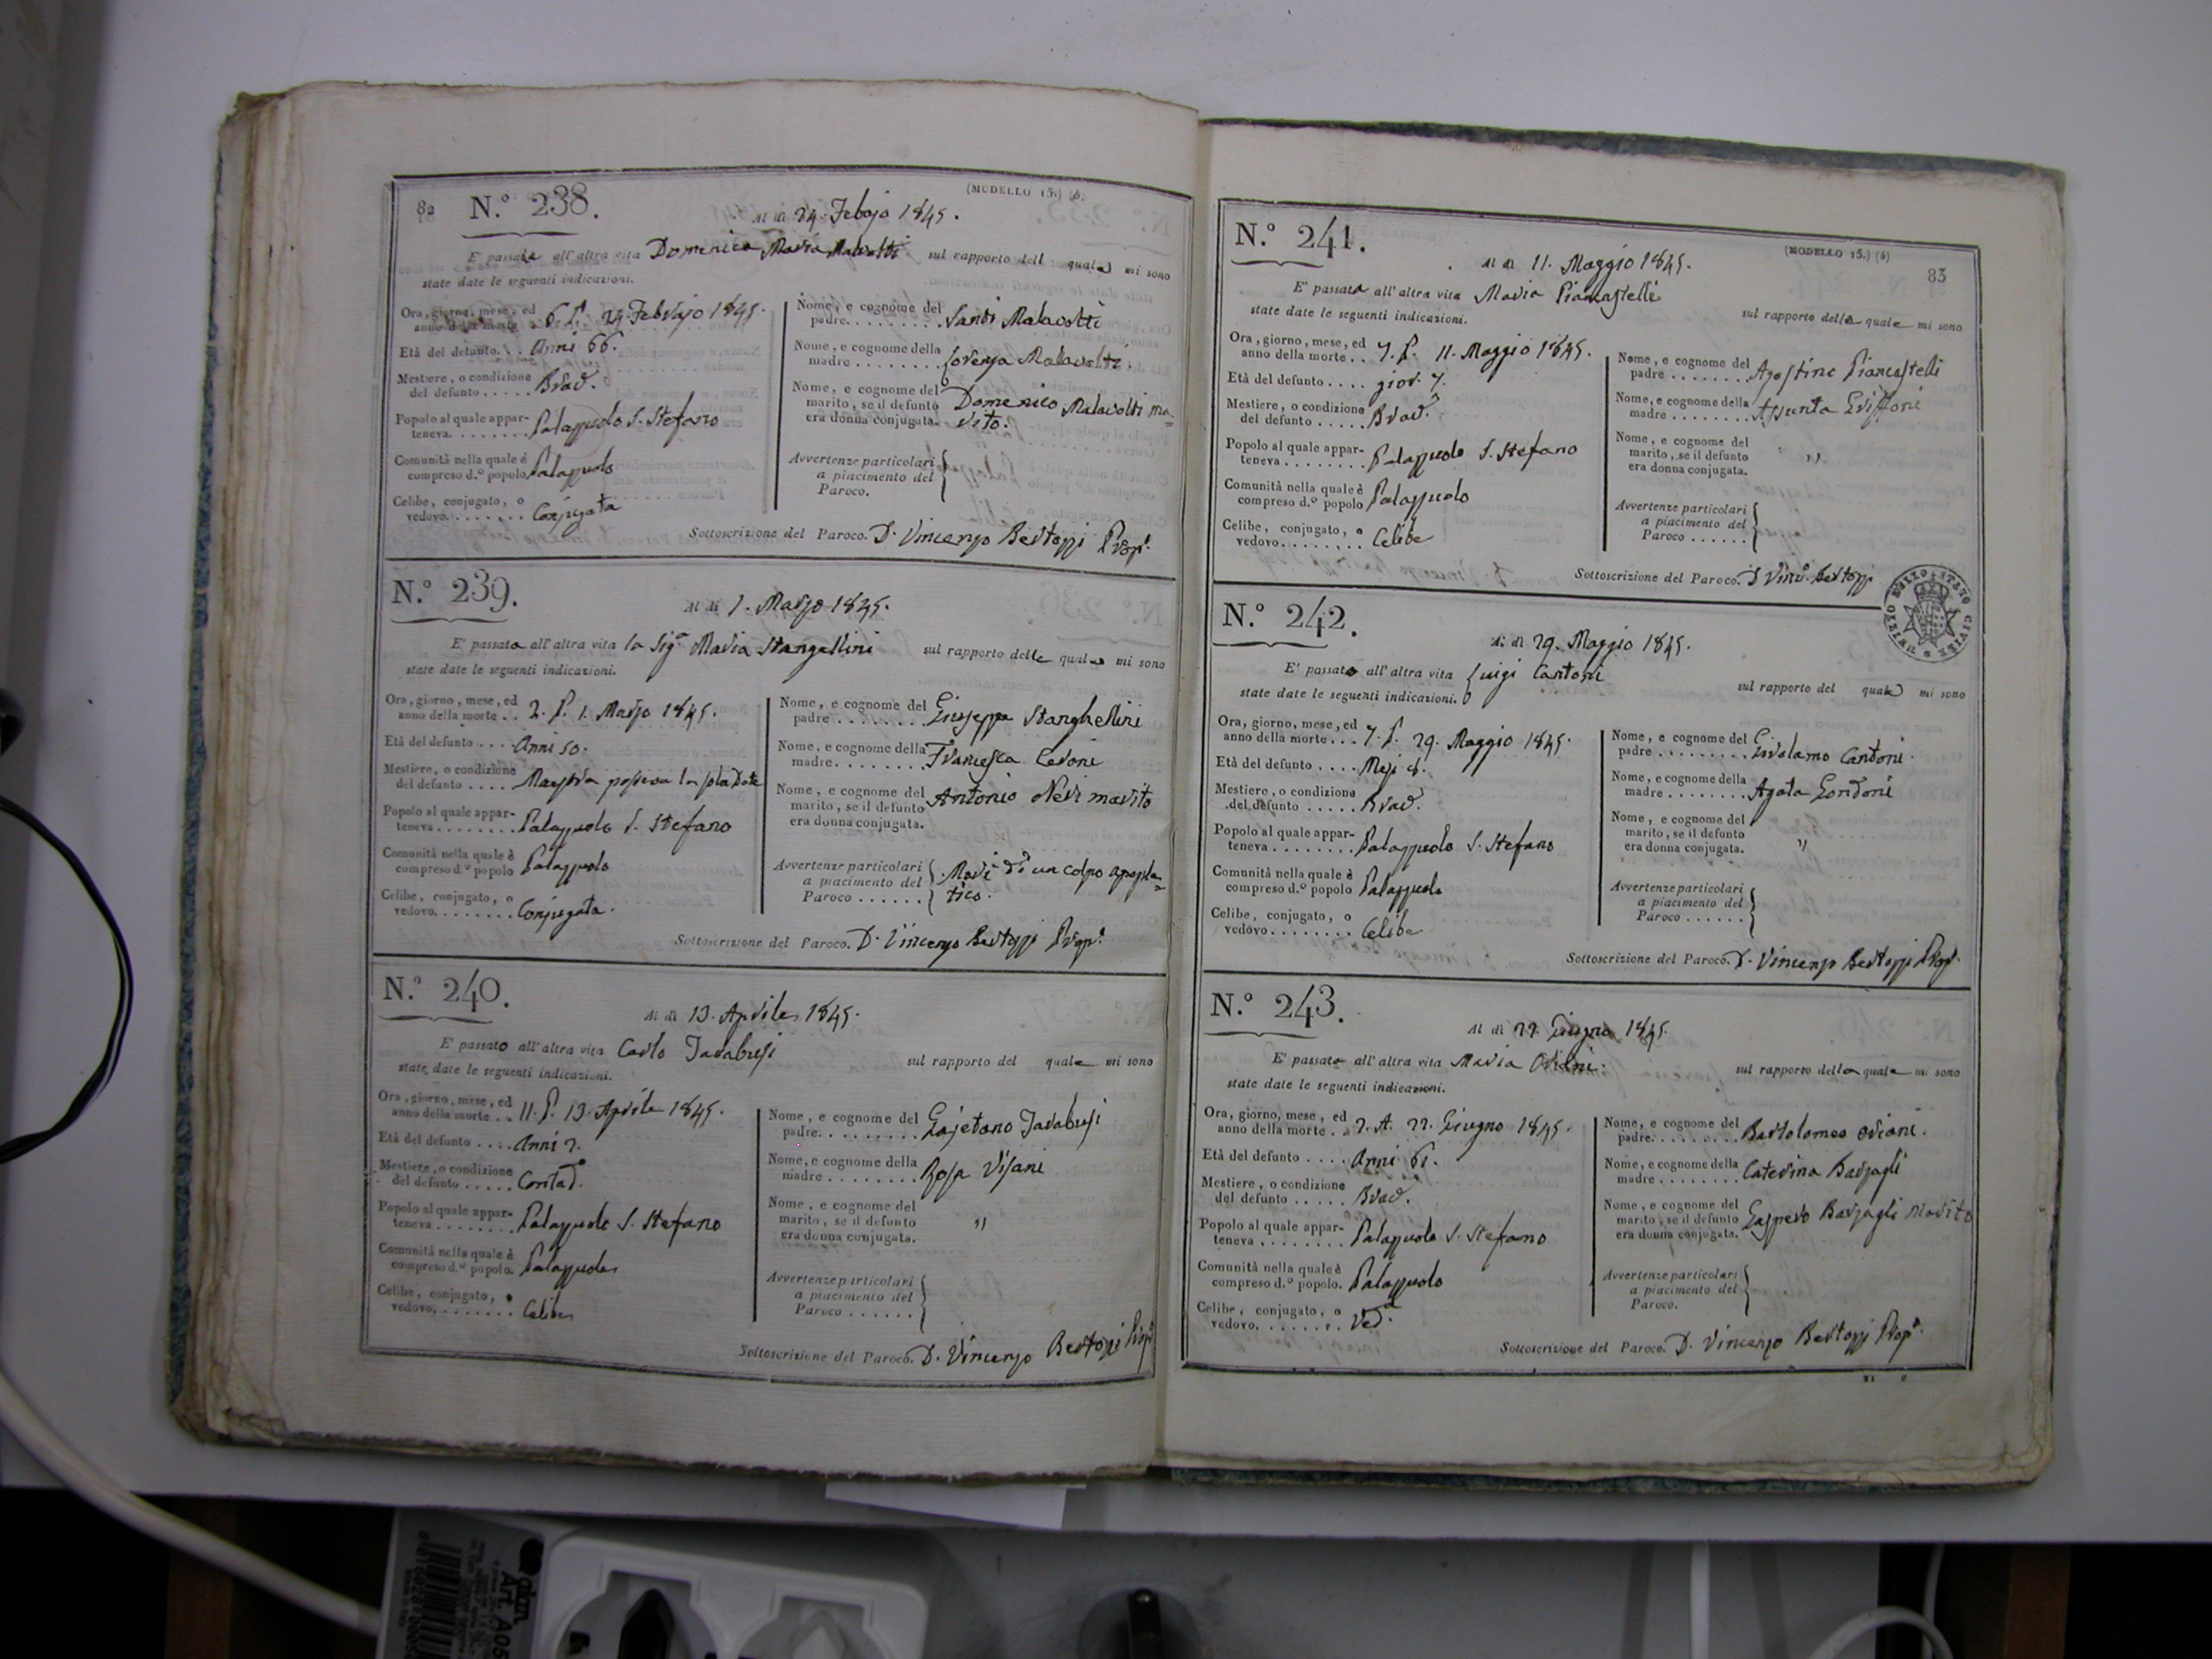 82 N.º 238. (MODELLO 15.) (b)
Al dì 24. Febajo 1845.
E' passata all'altra vita Domenica Maria Malavolti sul rapporto dell quale mi sono
state date le seguenti indicazioni.
Ora, giorno, mese, ed
anno della morte . 6. P. 24 Febbrajo 1845.
Età del defunto. . . Anni 66.
Mestiere, o condizione
del defunto . . . . . Brac.
Popolo al quale appar-
teneva. . . . . . . . Palazzuolo S. Stefano
Comunità nella quale è
compreso d.º popolo Palazzuolo
Celibe, conjugato, o
vedovo. . . . . . . . Conjugata
Nome, e cognome del
padre. . . . . . . . . Santi Malavolti
Nome, e cognome della
madre . . . . . . . . Lorenza Malavolti.
Nome, e cognome del
marito, se il defunto
era donna conjugata. Domenico Malavolti ma=
rito.
Avvertenze particolari
a piacimento del
Paroco.
Sottoscrizione del Paroco. D. Vincenzo Bertozzi Prop.º
N.º 239.
Al dì 1. Marzo 1845.
E' passata all'altra vita la Sig.ª Maria Stangellini sul rapporto della quale mi sono
state date le seguenti indicazioni.
Ora, giorno, mese, ed
anno della morte . . 2. P. 1. Marzo 1845.
Età del defunto . . . . Anni 50.
Mestiere, o condizione
del defunto . . . . Maestra la Dote
Popolo al quale appar-
teneva . . . . . . . . Palazzuolo S. Stefano
Comunità nella quale è
compreso d.º popolo Palazzuolo
Celibe, conjugato, o
vedovo. . . . . . . . Conjugata.
Nome, e cognome del
padre . . . . . . . Giuseppe Stanghellini
Nome, e cognome della
madre. . . . . . . . Francesca Ceroni
Nome, e cognome del
marito, se il defunto
era donna conjugata. Antonio Neri marito
Avvertenze particolari
a piacimento del
Paroco . . . . . . Morì di un colpo apople=
tico.
Sottoscrizione del Paroco. D. Vincenzo Bertozzi Prop.º
N.º 240.
Al dì 13. Aprile 1845.
E' passato all'altra vita Carlo Tarabusi sul rapporto del quale mi sono
state date le seguenti indicazioni.
Ora, giorno, mese, ed
anno della morte . . 11. P. 13. Aprile 1845.
Età del defunto . . . . Anni 2.
Mestiere, o condizione
del defunto . . . . . Contad.
Popolo al quale appar-
teneva . . . . . . . . Palazzuolo S. Stefano
Comunità nella quale è
compreso d.º popolo. Palazzuolo
Celibe, conjugato, o
vedovo. . . . . . . . Celibe
Nome, e cognome del
padre. . . . . . . . . Gajetano Tarabusi
Nome, e cognome della
madre . . . . . . . . . Rosa Visani
Nome, e cognome del
marito, se il defunto
era donna conjugata. "
Avvertenze particolari
a piacimento del
Paroco . . . . . .
Sottoscrizione del Paroco. D. Vincenzo Bertozzi Prop.º
N.º 241. (MODELLO 15.) (b)
83
Al dì 11. Maggio 1845.
E' passata all'altra vita Maria Piancastelli
sul rapporto della quale mi sono
state date le seguenti indicazioni.
Ora, giorno, mese, ed
anno della morte . . 7. P. 11. Maggio 1845.
Età del defunto . . . . gior. 7.
Mestiere, o condizione
del defunto . . . . . Brac.
Popolo al quale appar-
teneva . . . . . . . . Palazzuolo S. Stefano
Comunità nella quale è
compreso d.º popolo Palazzuolo
Celibe, conjugato, o
vedovo. . . . . . . . Celibe
Nome, e cognome del
padre . . . . . . . . Agostino Piancastelli
Nome, e cognome della
madre. . . . . . . . Assunta
Nome, e cognome del
marito, se il defunto
era donna conjugata. "
Avvertenze particolari
a piacimento del
Paroco . . . . . .
Sottoscrizione del Paroco. D. Vinc.º Bertozzi
UFIZIO DELLO STATO CIVILE
N.º 242.
Al dì 29. Maggio 1845.
E' passato all'altra vita Luigi Cantoni
sul rapporto del quale mi sono
state date le seguenti indicazioni.
Ora, giorno, mese, ed
anno della morte . . . 7. P. 29. Maggio 1845.
Età del defunto . . . . Mesi 8.
Mestiere, o condizione
del defunto . . . . . Brac.
Popolo al quale appar-
teneva . . . . . . . . Palazzuolo S. Stefano
Comunità nella quale è
compreso d.º popolo Palazzuolo
Celibe, conjugato, o
vedovo. . . . . . . . Celibe
Nome, e cognome del
padre . . . . . . . . Girolamo Cantoni.
Nome, e cognome della
madre. . . . . . . . Agata Gordoni
Nome, e cognome del
marito, se il defunto
era donna conjugata. "
Avvertenze particolari
a piacimento del
Paroco . . . . . .
Sottoscrizione del Paroco. D. Vincenzo Bertozzi Prop.
N.º 243.
Al dì 22. Giugno 1845.
E' passata all'altra vita Maria Oriani.
sul rapporto della quale mi sono
state date le seguenti indicazioni.
Ora, giorno, mese, ed
anno della morte . . 2. A. 22. Giugno 1845.
Età del defunto . . . . Anni 61.
Mestiere, o condizione
del defunto . . . . . Brac.
Popolo al quale appar-
teneva . . . . . . . . Palazzuolo S. Stefano
Comunità nella quale è
compreso d.º popolo. Palazzuolo
Celibe, conjugato, o
vedovo. . . . . . . . Ved.ª
Nome, e cognome del
padre. . . . . . . . Bartolomeo Oriani.
Nome, e cognome della
madre. . . . . . . . Caterina Barzagli
Nome, e cognome del
marito, se il defunto
era donna conjugata. Gaspero Barzagli Marito
Avvertenze particolari
a piacimento del
Paroco.
Sottoscrizione del Paroco. D. Vincenzo Bertozzi Prop.º
Art. A05